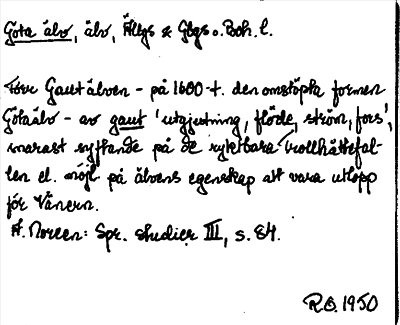 Göta älv, älv, Älvgs & Gbgs o. Boh. l.
Förr Gautälven - på 1600-t. den omstöpta formen
Götaälv - av gaut 'utgjutning, flöde, ström, fors',
snarast syftande på de ryktbara Trollhättefal-
len el. möjl. på älvens egenskap att vara utlopp
för Vänern.
A. Noreen: Spr. studier III, s. 84.
R.O. 1950